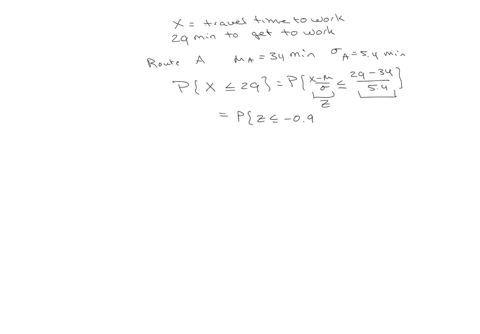 X = travel time to work
29 min to get to work
Route A μ_A = 34 min σ_A = 5.4 min
P{X ≤ 29} = P{(x-μ)/σ ≤ (29-34)/5.4}
Z
= P{Z ≤ -0.9